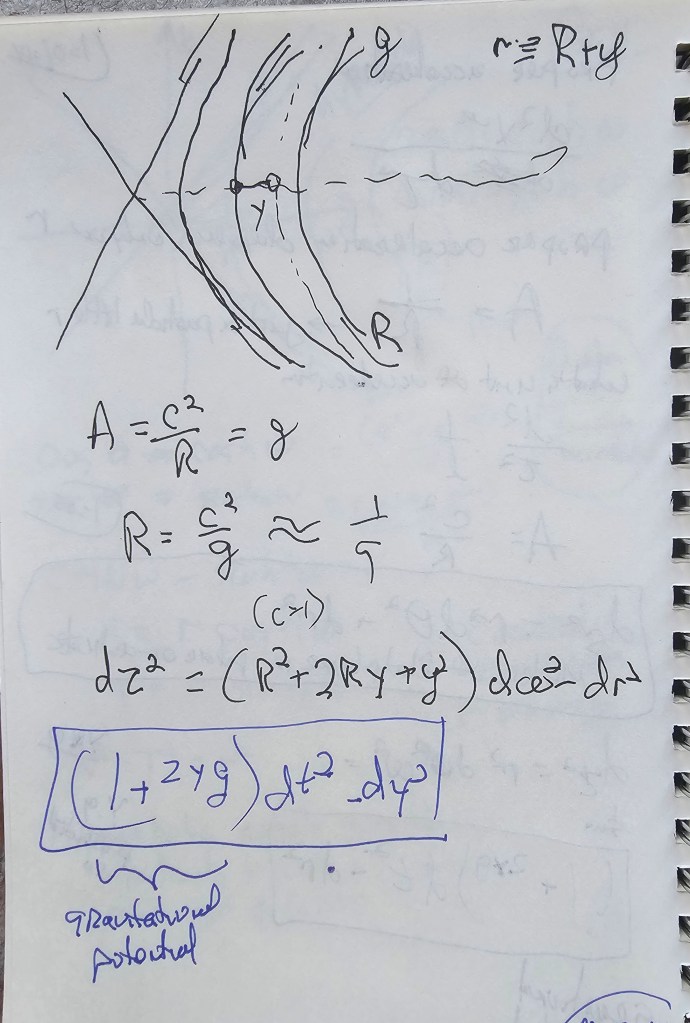 g r ≡ R+y
y
R
A = c²/R = g
R = c²/g ≈ 1/g
(c=1)
dτ² = (R²+2Ry+y²) dω² - dr²
(1+2yg) dt² - dy²
gravitational
potential